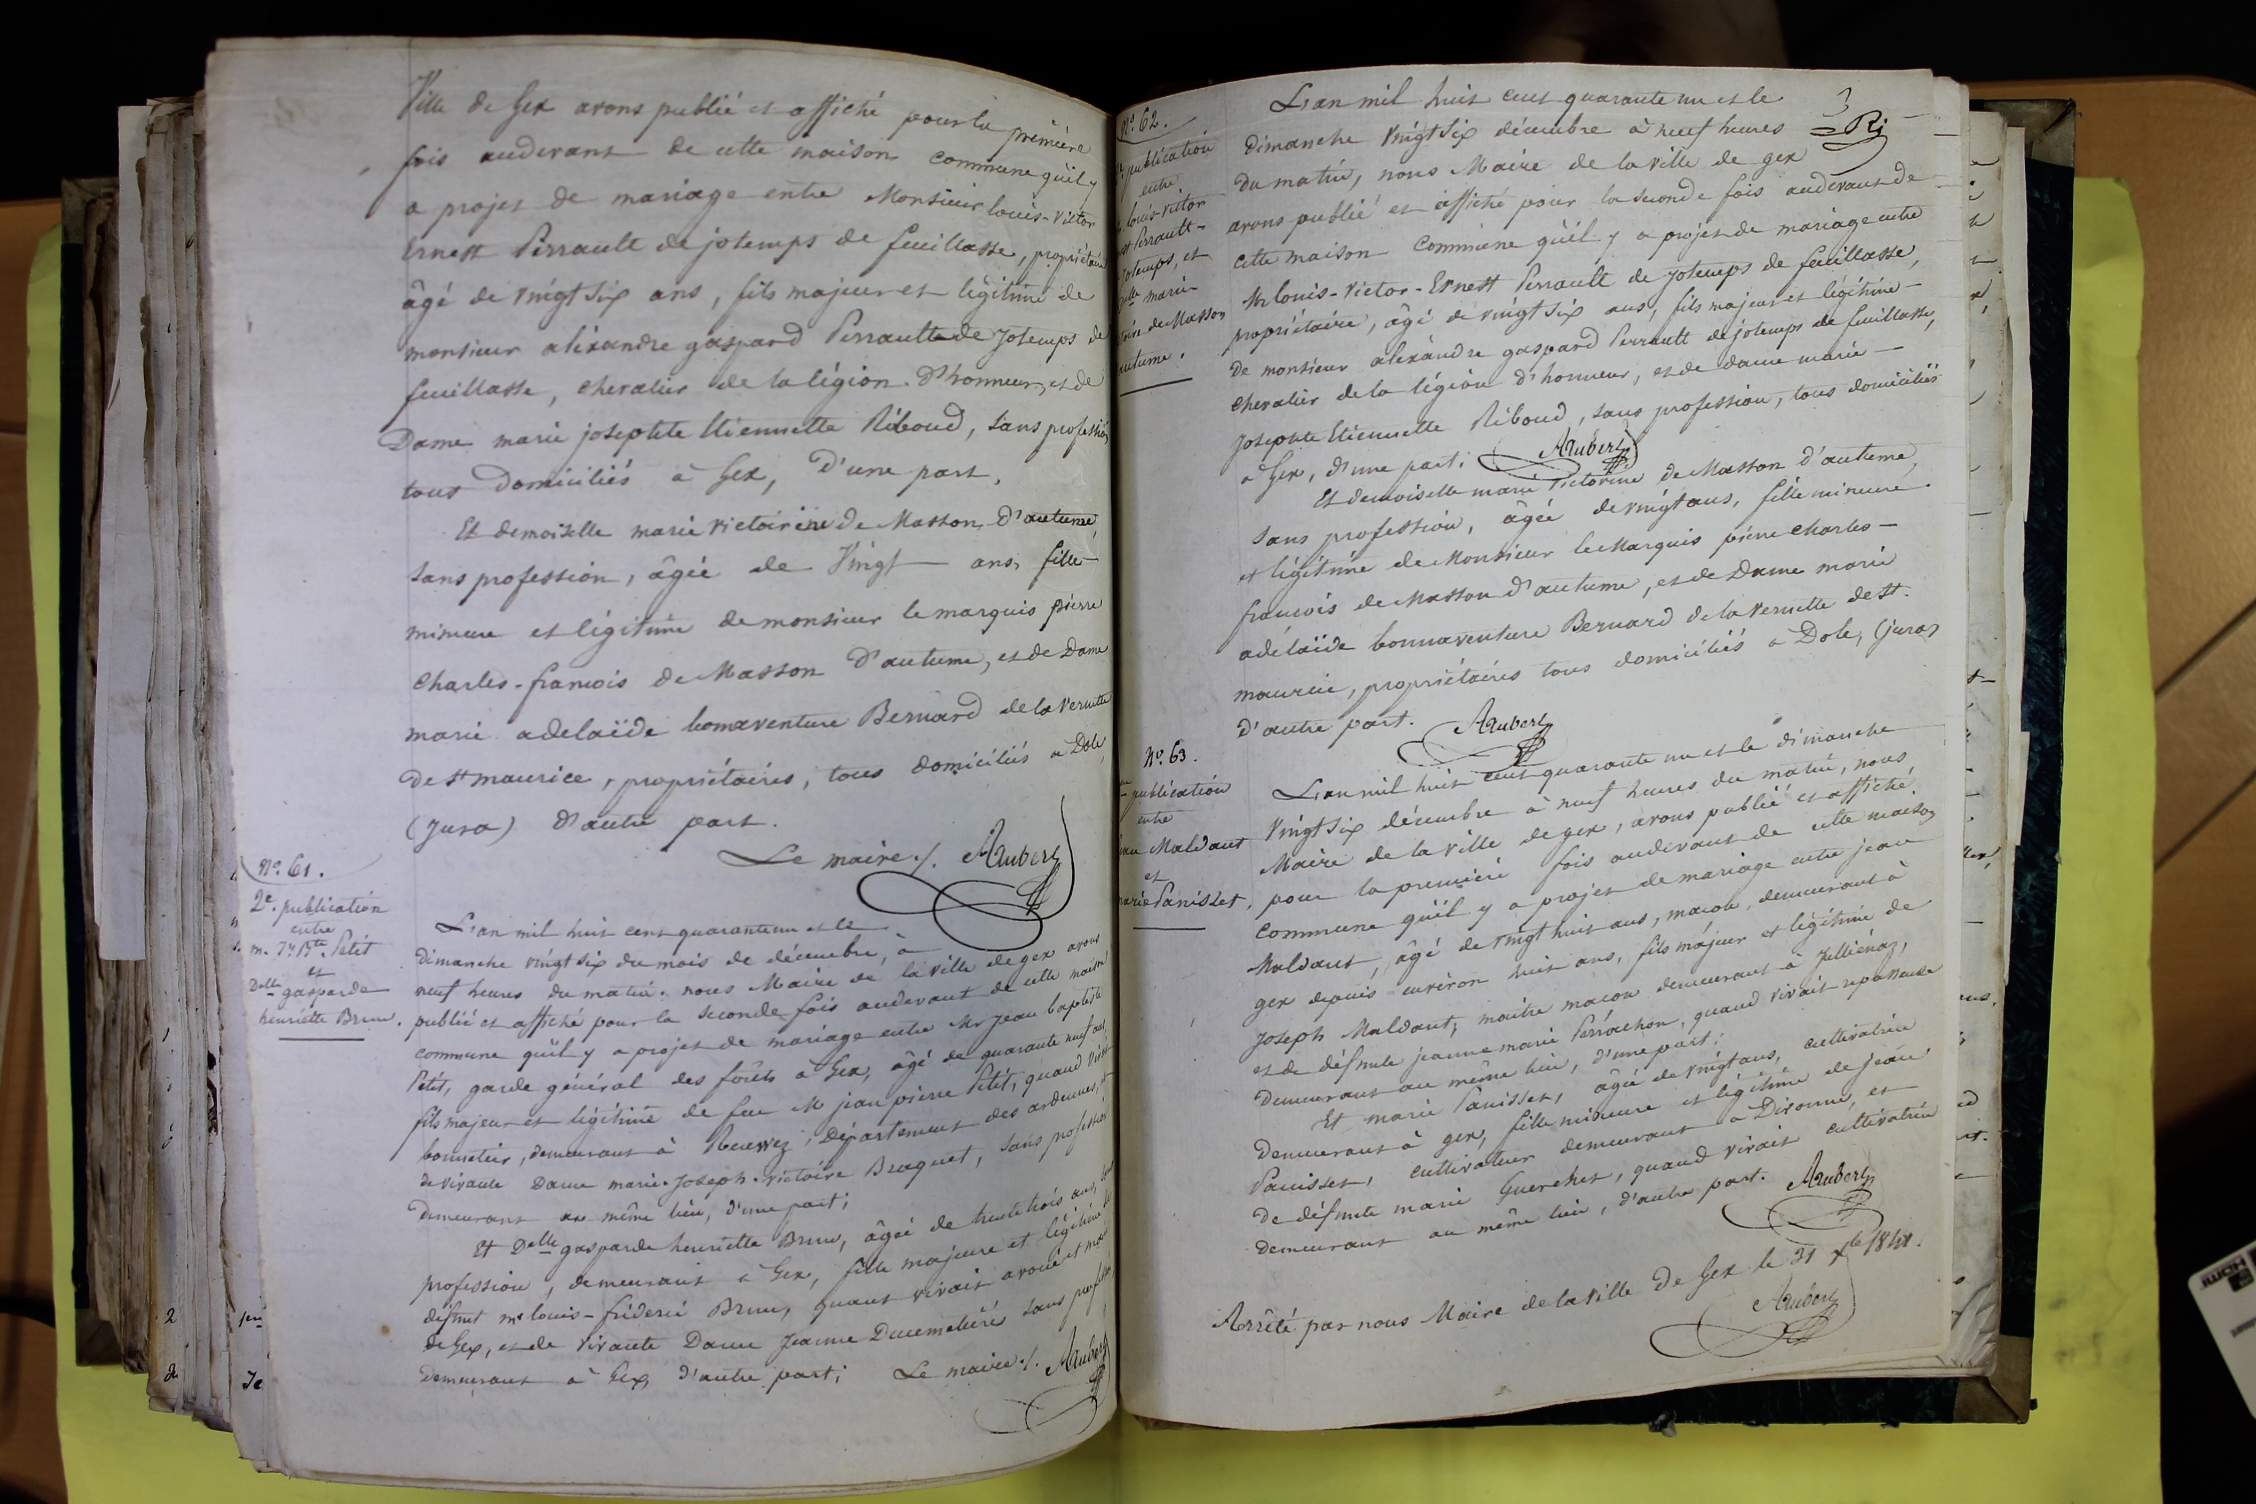 Ville de Gex avons publié et affiché pour la première
fois audevant de cette maison commune qu'il y
a projet de mariage entre Monsieur louis-victor
Ernest Perrault de jotemps de feuillasse, propriétaire
âgé de vingt six ans, fils majeur et légitime de
monsieur alexandre gaspard Perrault de Jotemps de
feuillasse, chevalier de la légion d'honneur, et de
Dame marie josephte Etiennette Riboud, sans profession
tous domiciliés à Gex, D'une part.
Et demoiselle marie victoirine de Masson d'autume
sans profession, âgée de Vingt ans, fille
mineure et légitime de monsieur le marquis pierre
charles-francois de Masson D'autume, et de Dame
marie adelaïde bonaventure Bernard de la vernette
de st maurice, propriétaires, tous domiciliés a Dole
(Jura) d'autre part.
Le maire ./. AAubert
No. 61.
2e. publication
entre
m. Jn Bte. Petit
et
Delle gasparde
henriette Brun.
L'an mil huit cent quarante un et le
dimanche vingt six du mois de décembre, à
neuf heures du matin. nous Maire de la ville de gex avons
publié et affiché pour la seconde fois audevant de cette maison
commune qu'il y a projet de mariage entre Mr jean baptiste
Petit, garde général des forêts à Gex, âgé de quarante neuf ans,
fils majeur et légitime de feu M jean pierre Petit, quand vivait
bonnetier, demeurant à Renwez, Département des ardennes, et
de vivante Dame marie-Joseph-victoire Braquet, sans profession
demeurant au même lieu, d'une part;
Et Delle gasparde henriette Brun, âgée de trente trois ans, sans
profession, demeurant à Gex, fille majeure et légitime de
défunt mr louis-fréderic Brun, quant vivait avoué et
de Gex, et de vivante Dame Jeanne sans profession
demeurant à Gex, d'autre part; Le maire ./. AAubert
3
No. 62.
publication
entre
louis-victor
Perrault-
jotemps, et
Delle marie-
de Masson
autume.
L'an mil huit cent quarante un et le
dimanche vingt six décembre à neuf heures
du matin, nous Maire de la ville de gex
avons publié et affiché pour la seconde fois audevant de
cette maison commune qu'il y a projet de mariage entre
Mr louis-victor-Ernest Perrault de jotemps de feuillasse,
propriétaire, âgé de vingt six ans, fils majeur et légitime
de monsieur alexandre gaspard Perrault de jotemps de feuillasse,
chevalier de la légion d'honneur, et de dame marie
josephte Etiennette Riboud, sans profession, tous domiciliés
à Gex, d'une part; AAubert
Et demoiselle marie victorine de Masson d'autume,
sans profession, âgée de vingt ans, fille mineure
et légitime de Monsieur le Marquis pierre charles-
francois de Masson d'autume, et de Dame marie
adélaïde bonnaventure Bernard de la vernette de st.
maurice, propriétaires tous domiciliés a Dole, (jura)
d'autre part. AAubert
No. 63.
publication
entre
Maldant
et
marie Panisset.
L'an mil huit cent quarante un et le dimanche
vingt six décembre à neuf heures du matin, nous
Maire de la ville de gex, avons publié et affiché
pour la première fois audevant de cette maison
commune qu'il y a projet de mariage entre jean
Maldant, âgé de vingt huit ans, maçon, demeurant à
gex depuis environ huit ans, fils majeur et légitime de
joseph Maldant, maitre maçon demeurant à
et de défunte jeanne marie Perrachon, quand vivait repasseuse
demeurant au même lieu, d'une part;
Et marie Panisset, âgée de vingt ans, cultivatrice
demeurant à gex, fille mineure et légitime de jean
Panisset, cultivateur demeurant à Divonne, et
de défunte marie Guerchet, quand vivait cultivatrice
demeurant au même lieu, d'autre part. AAubert
Arrêté par nous Maire de la ville De Gex le 31 Xbre 1841.
AAubert